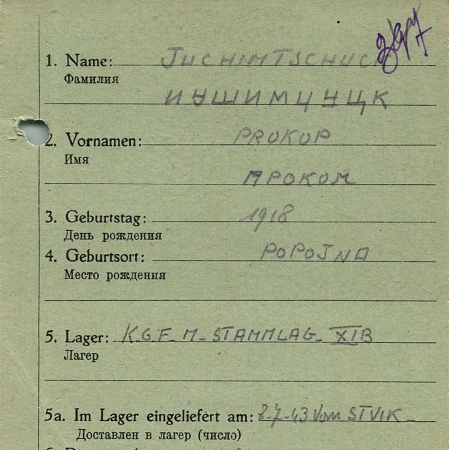 397
1. Name: JUCHIMTSCHUCK
Фамилия
ИУШИМЦУЦК
2. Vornamen: PROKOP
Имя
ПРОКОМ
3. Geburtstag: 1918
День рождения
4. Geburtsort: POPOJNA
Место рождения
5. Lager: K.G.F. M-STAMMLAG. XIB
Лагер
5a. Im Lager eingeliefert am: 2.7.43 Vom ST VI K
Доставлен в лагер (число)